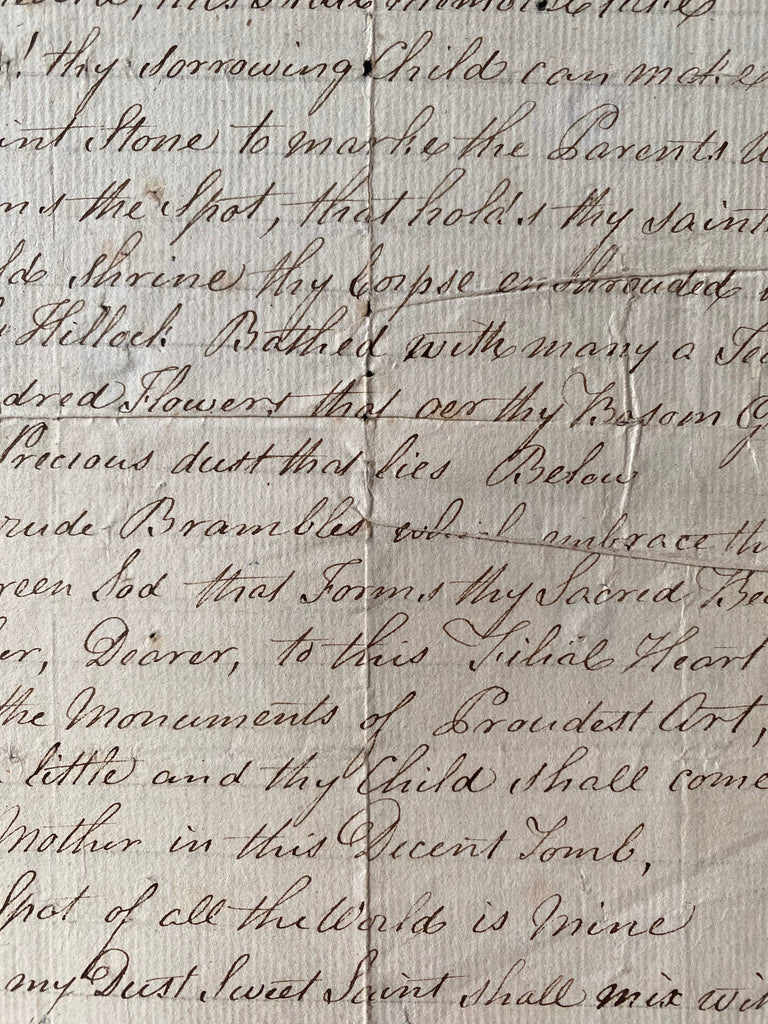 ! thy sorrowing Child can make
int Stone to marke the Parents
ns the Spot, that hold's thy saint
ld shrine thy Corpse enshrouded
Hillock Bathed with many a Tea
dred Flowers that oer thy Bosom G
Precious dust that lies Below
rude Brambles which embrace th
reen Sod that Forms thy Sacred Be
er, Dearer, to this Filial Heart
the Monuments of Proudest Art,
little and thy Child shall come
Mother in this Decent Tomb,
Spot of all the World is Mine
my Dust Sweet Saint shall mix wit